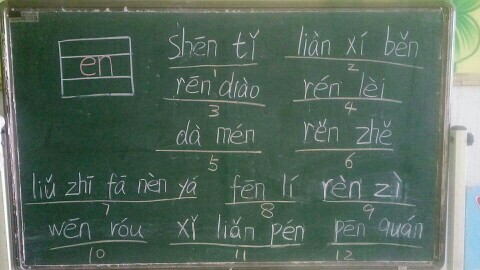 en
shēn tǐ liàn xí běn
1 2
rén diào rén lèi
3 4
dà mén rěn zhě
5 6
liǔ zhī fā nèn yá fēn lí rèn zì
7 8 9
wēn róu xǐ liǎn pén pēn quán
10 11 12